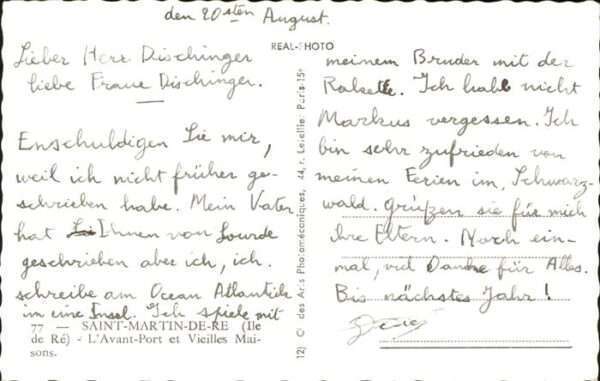 den 20sten August.
Lieber Herr Dischinger
liebe Fraue Dischinger.
Enschuldigen Sie mir,
weil ich nicht früher ge-
schrieben habe. Mein Vater
hat Ihnen von Lourde
geschrieben aber ich, ich
schreibe am Ocean Atlantik
im eine Insel. Ich spiele mit
77 — SAINT-MARTIN-DE-RE (Ile
de Ré) - L'Avant-Port et Vieilles Mai-
sons.
REAL-PHOTO
12) © des Arts Photomécaniques, 44, r. Letellier Paris-15e
meinem Bruder mit der
Rakette. Ich habe nicht
Markus vergessen. Ich
bin sehr zufrieden von
meinen Ferien im, Schwarz-
wald. Grüßen sie für mich
ihre Eltern. Noch ein-
mal, viel Danke für Alles.
Bis nächstes Jahr!